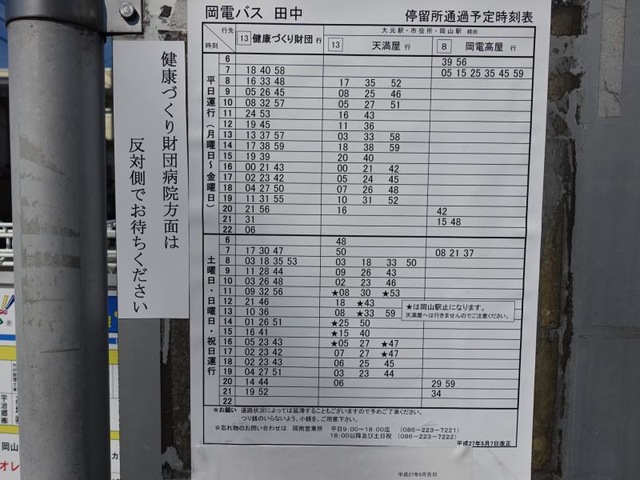 岡電バス 田中
停留所通過予定時刻表
行先
時刻
13 健康づくり財団 行
大元駅・市役所・岡山駅 経由
13 天満屋 行
8 岡電高屋 行
平日運行(月曜日~金曜日)
6 39 56
7 18 40 58 05 15 25 35 45 59
8 16 33 48 17 35 52
9 05 26 45 08 25 46
10 08 32 57 05 27 51
11 24 53 16 43
12 19 45 11 36
13 13 37 57 03 33 58
14 17 38 59 18 38 59
15 19 39 20 40
16 00 21 43 00 21 42
17 02 23 42 05 24 45
18 04 27 50 07 26 48
19 11 31 55 10 31 52
20 21 56 16 42
21 31 15 48
22 06
土曜日・日曜日・祝日運行
6 48
7 17 30 47 50 08 21 37
8 03 18 35 53 03 18 33 50
9 11 28 44 09 26 43
10 03 26 48 02 23 46
11 09 32 56 ★08 30 ★53
12 21 46 18 ★43
13 10 36 08 ★33 59
14 01 26 51 ★25 50
15 16 41 ★15 40
16 05 23 43 ★05 27 ★47
17 02 23 43 07 27 ★47
18 02 23 43 06 25 45
19 04 27 51 03 23 44
20 14 44 06 29 59
21 19 52 34
22
★は岡山駅止になります。
天満屋へは行きませんのでご注意ください。
★お願い 道路状況によっては延滞することもございますので予めご了承ください。
つり銭のいらないよう、小銭を、ご用意下さい。
☆忘れ物のお問い合わせは 岡南営業所 平日9:00~18:00迄 (086-223-7221)
18:00以降及び土日祝 (086-223-7222)
平成27年5月7日改正
平成27年6月吉日
健康づくり財団病院方面は
反対側でお待ちください
岡山
オレ